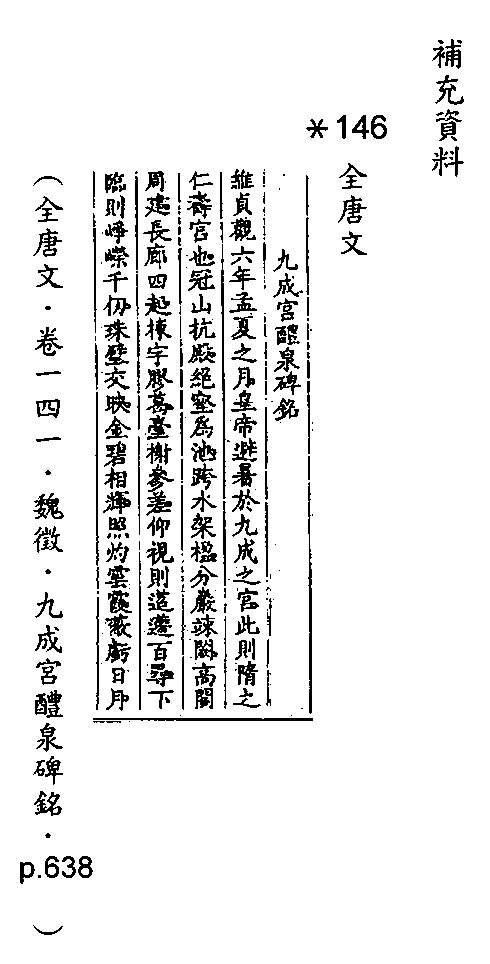 補充資料
＊146
全唐文
九成宮醴泉碑銘
維貞觀六年孟夏之月皇帝避暑於九成之宮此則隋之
仁壽宮也冠山抗殿絕壑爲池跨水架楹分巖竦闕高閣
周建長廊四起棟宇膠葛臺榭參差仰視則迢遰百尋下
臨則崢嶸千仞珠璧交映金碧相輝照灼雲霞蔽虧日月
（全唐文．卷一四一．魏徵．九成宮醴泉碑銘．p.638）